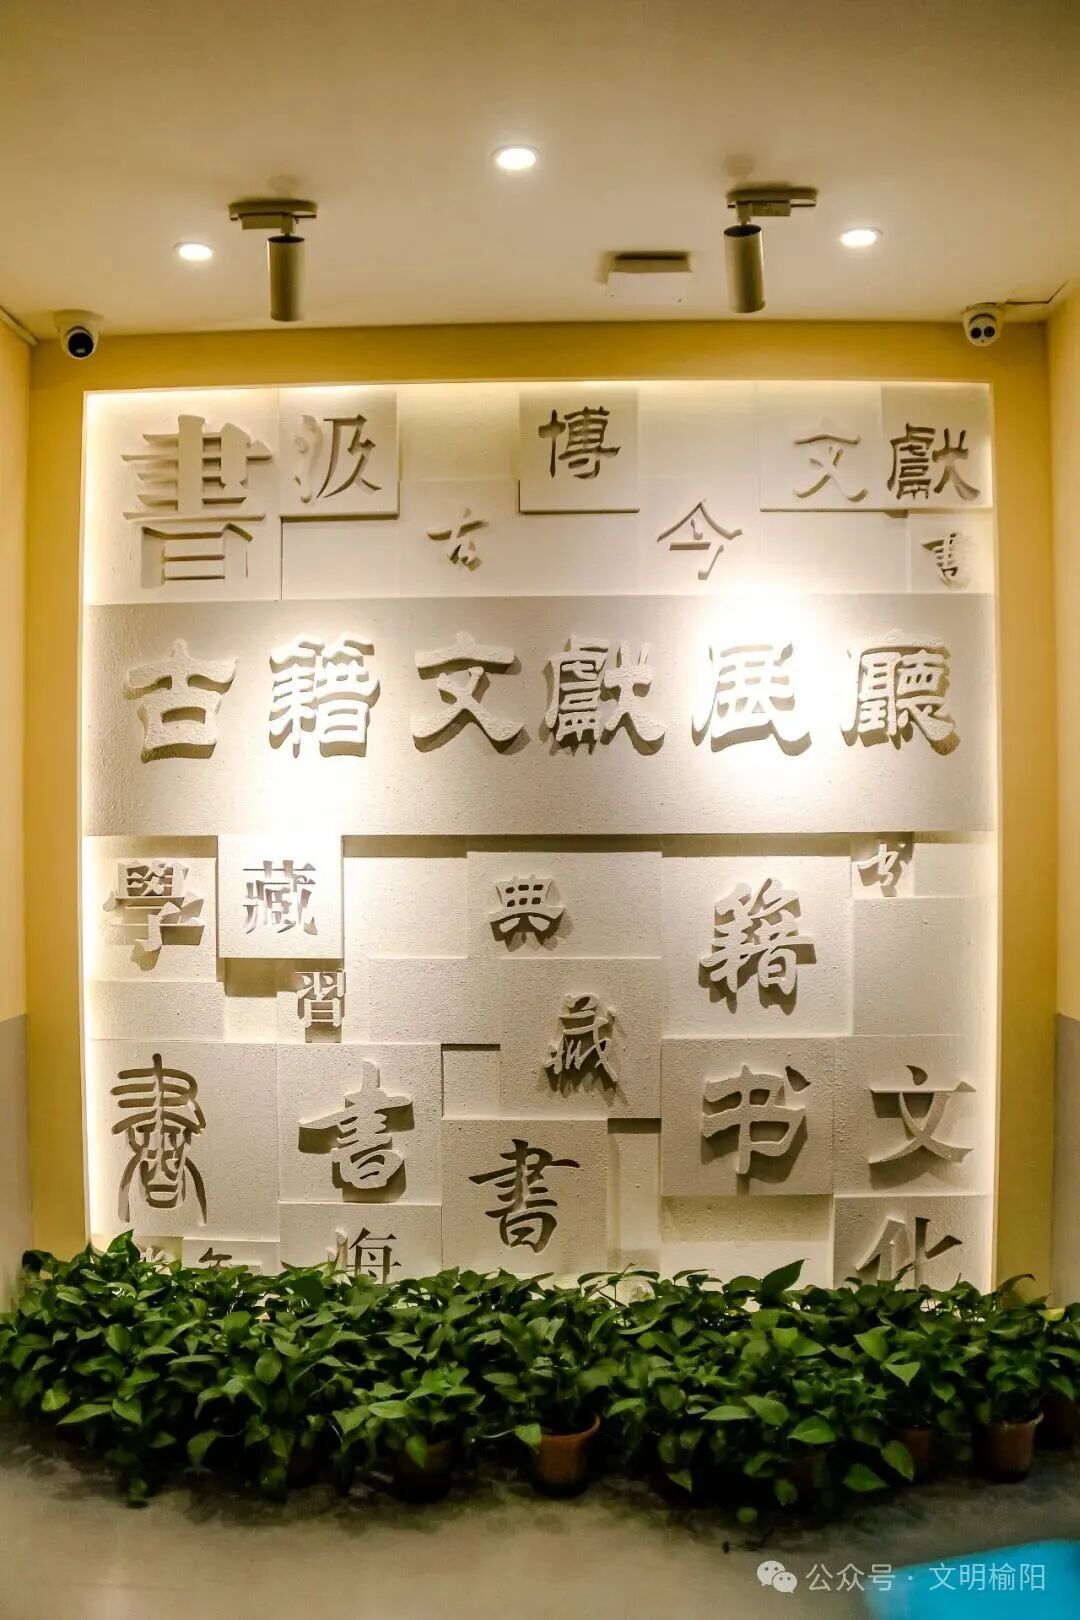 書 汲 博 文 獻
古 今 書
古籍文獻展廳
學 藏 典 籍 书
習 藏
書 書 書 书 文
海 化
公众号·文明榆阳